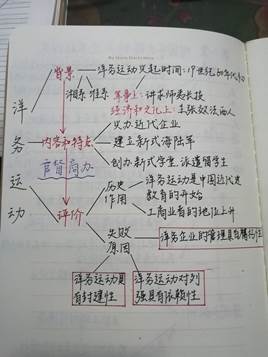 背景
洋务运动兴起时间:19世纪60年代初
湘系 淮系
军事上:讲求师夷长技
经济和文化上:主张效法西人
洋务运动
内容和特点
兴办近代企业
建立新式海陆军
创办新式学堂,派遣留学生
官督商办
评价
历史作用
洋务运动是中国近代史教育的开始
工商业者的地位上升
失败原因
洋务企业的管理具有腐朽性
洋务运动具有封建性
洋务运动对列强具有依赖性